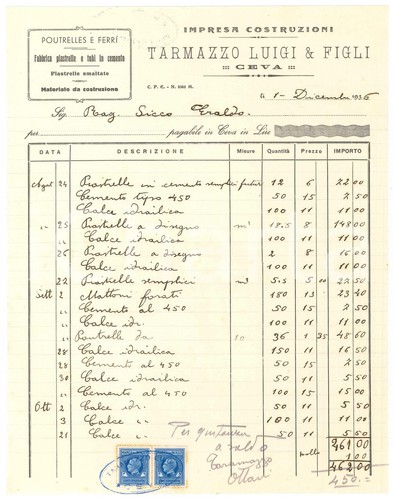 POUTRELLES E FERRÍ
Fabbrica piastrelle e tubi in cemento
Piastrelle smaltate
Materiale da costruzione
IMPRESA COSTRUZIONI
TARMAZZO LUIGI & FIGLI
::: CEVA :::
C. P. C. - N.
li 1 - Dicembre 1936
Sig. Rag. Sicco Eraldo
per pagabile in Ceva in Lire
DATA DESCRIZIONE Misure Quantità Prezzo IMPORTO
Agst 24 Piastrelle in cemento semplici 12 6 72 00
Cemento tipo 450 50 15 7 50
Calce idrailica 100 11 11 00
" 25 Piastrelle a disegno m² 18.5 8 148 00
Calce idrailica 100 11 11 00
" 26 Piastrelle a disegno 2 8 16 00
Calce idrailica 100 11 11 00
Piastrelle semplici 5.5 5
Sett 2 Mattoni forati 180 13 23 40
" Cemento al 450 50 15 7 50
" Calce idr. 100 11 11 00
" Poutrelle da 10 36 1 35 48 60
" 28 Calce idrailica 150 11 16 50
" 28 Cemento al 450 50 15 7 50
" 30 Calce idrailica 50 11 5 50
" Cemento al 450 50 15 7 50
Ott 2 Calce idr. 50 11 5 50
" 3 Calce " 100 11 11 00
" 21 Calce " 50 11 5 50
461 00
bollo 1 00
462 00
450 =
Per quitanza
a saldo
Taramazzo